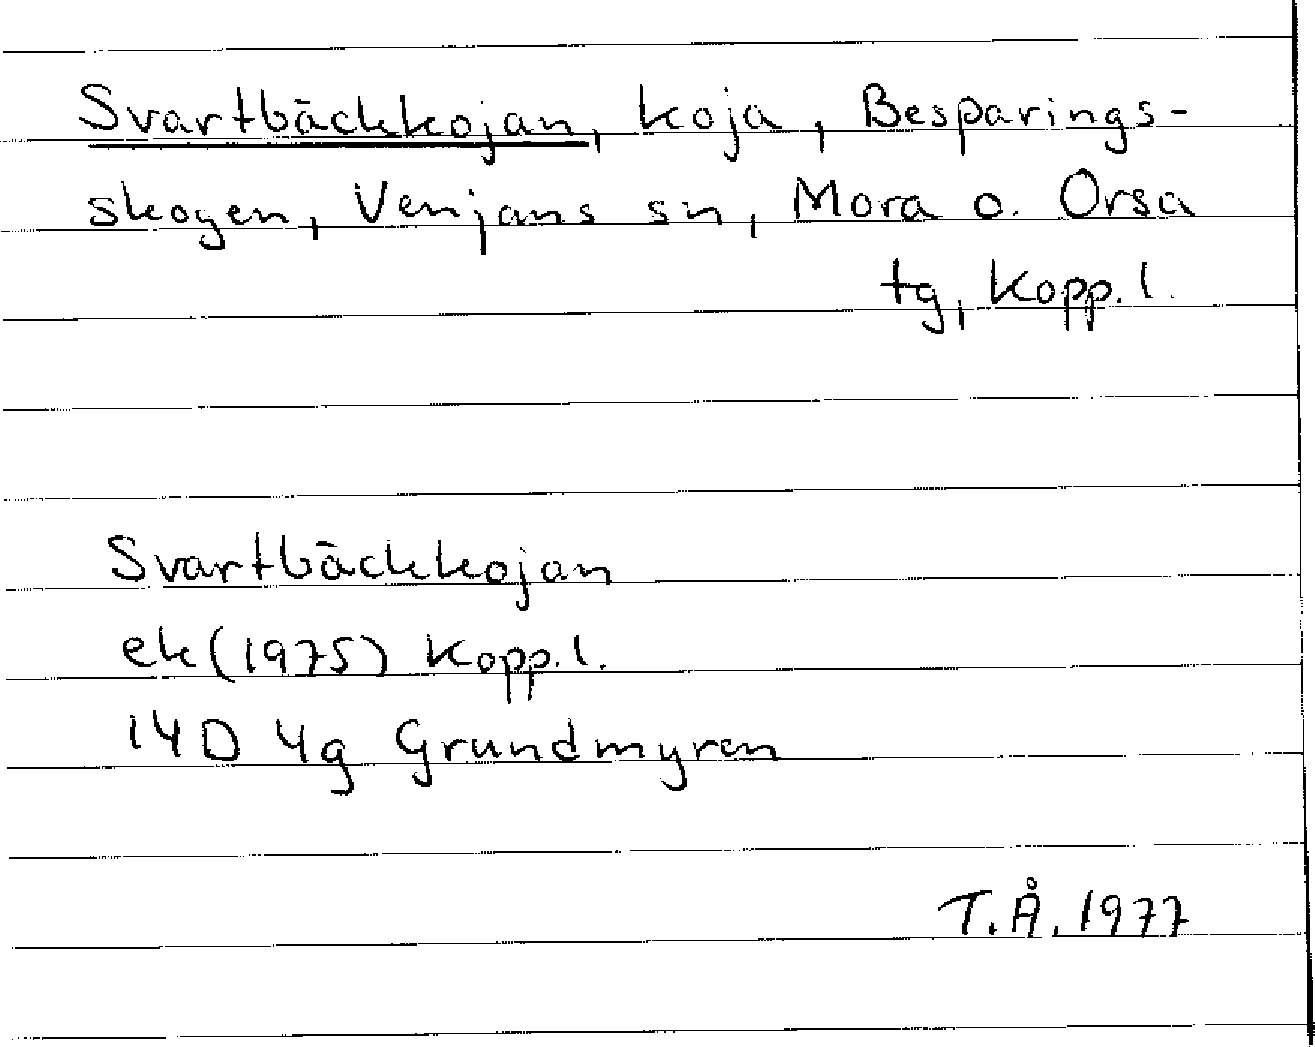 Svartbäckkojan, koja, Besparings-
skogen, Venjans sn, Mora o. Orsa
tg, Kopp. l.
Svartbäckkojan
ek (1975) Kopp. l.
14D 4g Grundmyren
T.Å. 1977